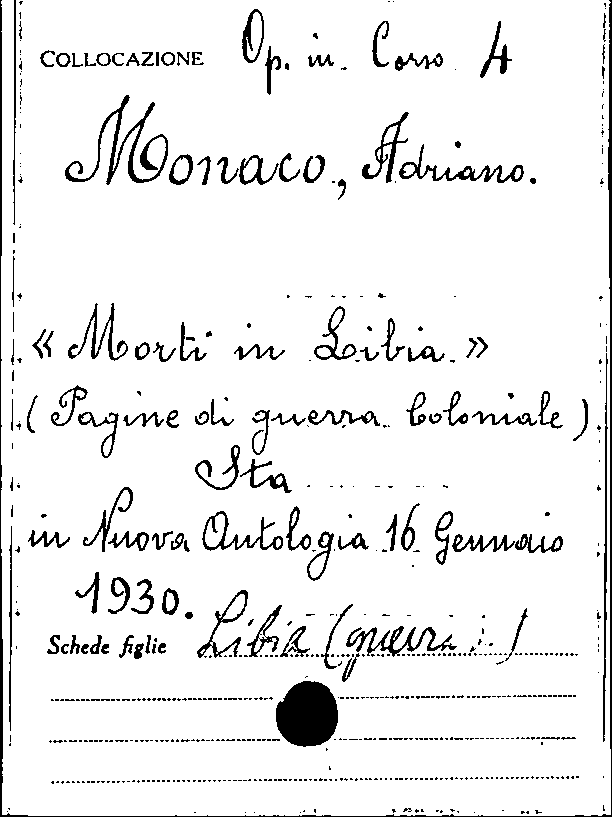 COLLOCAZIONE Op. in Corso 4
Monaco, Adriano.
« Morti in Libia »
( Pagine di guerra Coloniale )
Sta
in Nuova Antologia 16 Gennaio
1930.
Schede figlie Libia (guerra )